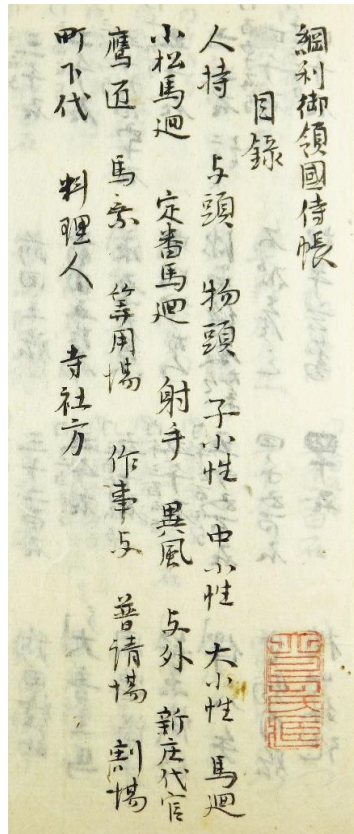 綱利御領國侍帳
目録
人持 与頭 物頭 子小性 中小性 大小性 馬廻
小松馬廻 定番馬廻 射手 異風 与外 新庄代官
鷹匠 馬乗 筭用場 作事与 普請場 割場
町下代 料理人 寺社方